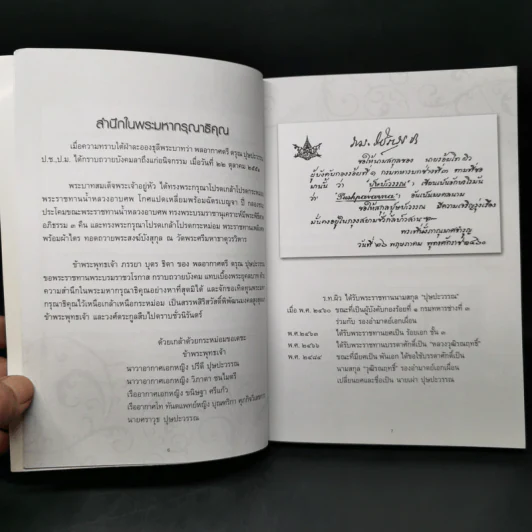 สำนึกในพระมหากรุณาธิคุณ
เมื่อความทราบใต้ฝ่าละอองธุลีพระบาทว่า พลอากาศตรี ดรุณ ปุษปะวรรณ
ป.ช.,ป.ม. ได้กราบถวายบังคมลาถึงแก่อนิจกรรม เมื่อวันที่ ๒๒ ตุลาคม
พระบาทสมเด็จพระเจ้าอยู่หัว ได้ทรงพระกรุณาโปรดเกล้าโปรดกระหม่อม
พระราชทานน้ำหลวงอาบศพ โกศแปดเหลี่ยมพร้อมฉัตรเบญจา ปี่ กลอง
ประโคมขณะพระราชทานน้ำหลวงอาบศพ ทรงพระบรมราชานุเคราะห์มีพระพิธีธรรม
อภิธรรม ๓ คืน และทรงพระกรุณาโปรดเกล้าโปรดกระหม่อม พระราชทานเพลิงศพ
พร้อมผ้าไตร ทอดถวายพระสงฆ์บังสุกุล ณ วัดพระศรีมหาธาตุวรวิหาร
ข้าพระพุทธเจ้า ภรรยา บุตร ธิดา ของ พลอากาศตรี ดรุณ ปุษปะวรรณ
ขอพระราชทานพระบรมราชวโรกาส กราบถวายบังคม แทบเบื้องพระยุคลบาท ด้วย
ความสำนึกในพระมหากรุณาธิคุณอย่างหาที่สุดมิได้ และจักขอเทิดทูนพระมหา
กรุณาธิคุณไว้เหนือเกล้าเหนือกระหม่อม เป็นสรรพสิริสวัสดิ์พิพัฒนมงคลสูงสุดแก่
ข้าพระพุทธเจ้า และวงศ์ตระกูลสืบไปตราบชั่วนิรันดร์
ด้วยเกล้าด้วยกระหม่อมขอเดชะ
ข้าพระพุทธเจ้า
นาวาอากาศเอกหญิง ปรีดี ปุษปะวรรณ
นาวาอากาศเอกหญิง วิภาดา ธนโมตรี
เรืออากาศเอกหญิง ขนิษฐา ศรีแก้ว
เรืออากาศโท ทันตแพทย์หญิง บุณฑริกา
นายศราวุธ ปุษปะวรรณ
๖
ขอให้นามสกุลของ นายร้อยโท ผิว
ผู้บังคับกองร้อยที่ ๑ กรมทหารบกช่างที่ ๓ ตามที่ขอ
มานั้น ว่า "ปุษปะวรรณ" เขียนเป็นอักษรโรมัน
ว่า "Pushpavarna" อันเป็นมงคลนาม
ขอให้สกุลปุษปะวรรณ มีความเจริญรุ่งเรือง
มั่นคงอยู่ในกรุงสยามชั่วกัลปาวสาน
วันที่ ๒๖ พฤษภาคม พุทธศักราช ๒๔๖๐
ร.ท.ผิว ได้รับพระราชทานนามสกุล "ปุษปะวรรณ"
เมื่อ พ.ศ. ๒๔๖๐ ขณะที่เป็นผู้บังคับกองร้อยที่ ๑ กรมทหารช่างที่ ๓
ร่วมกับ รองอำมาตย์เอกเผื่อน
พ.ศ.๒๔๖๓ ได้รับพระราชทานยศเป็น ร้อยเอก ชั้น ๓
พ.ศ. ๒๔๖๖ ได้รับพระราชทานบรรดาศักดิ์เป็น "หลวงวุฒิรณฤทธิ์"
พ.ศ. ๒๔๘๔ ขณะที่มียศเป็น พันเอก ได้ขอใช้บรรดาศักดิ์เป็น
นามสกุล "วุฒิรณฤทธิ์" รองอำมาตย์เอกเผื่อน
เปลี่ยนยศและชื่อเป็น นายเผ่า ปุษปะวรรณ
๗